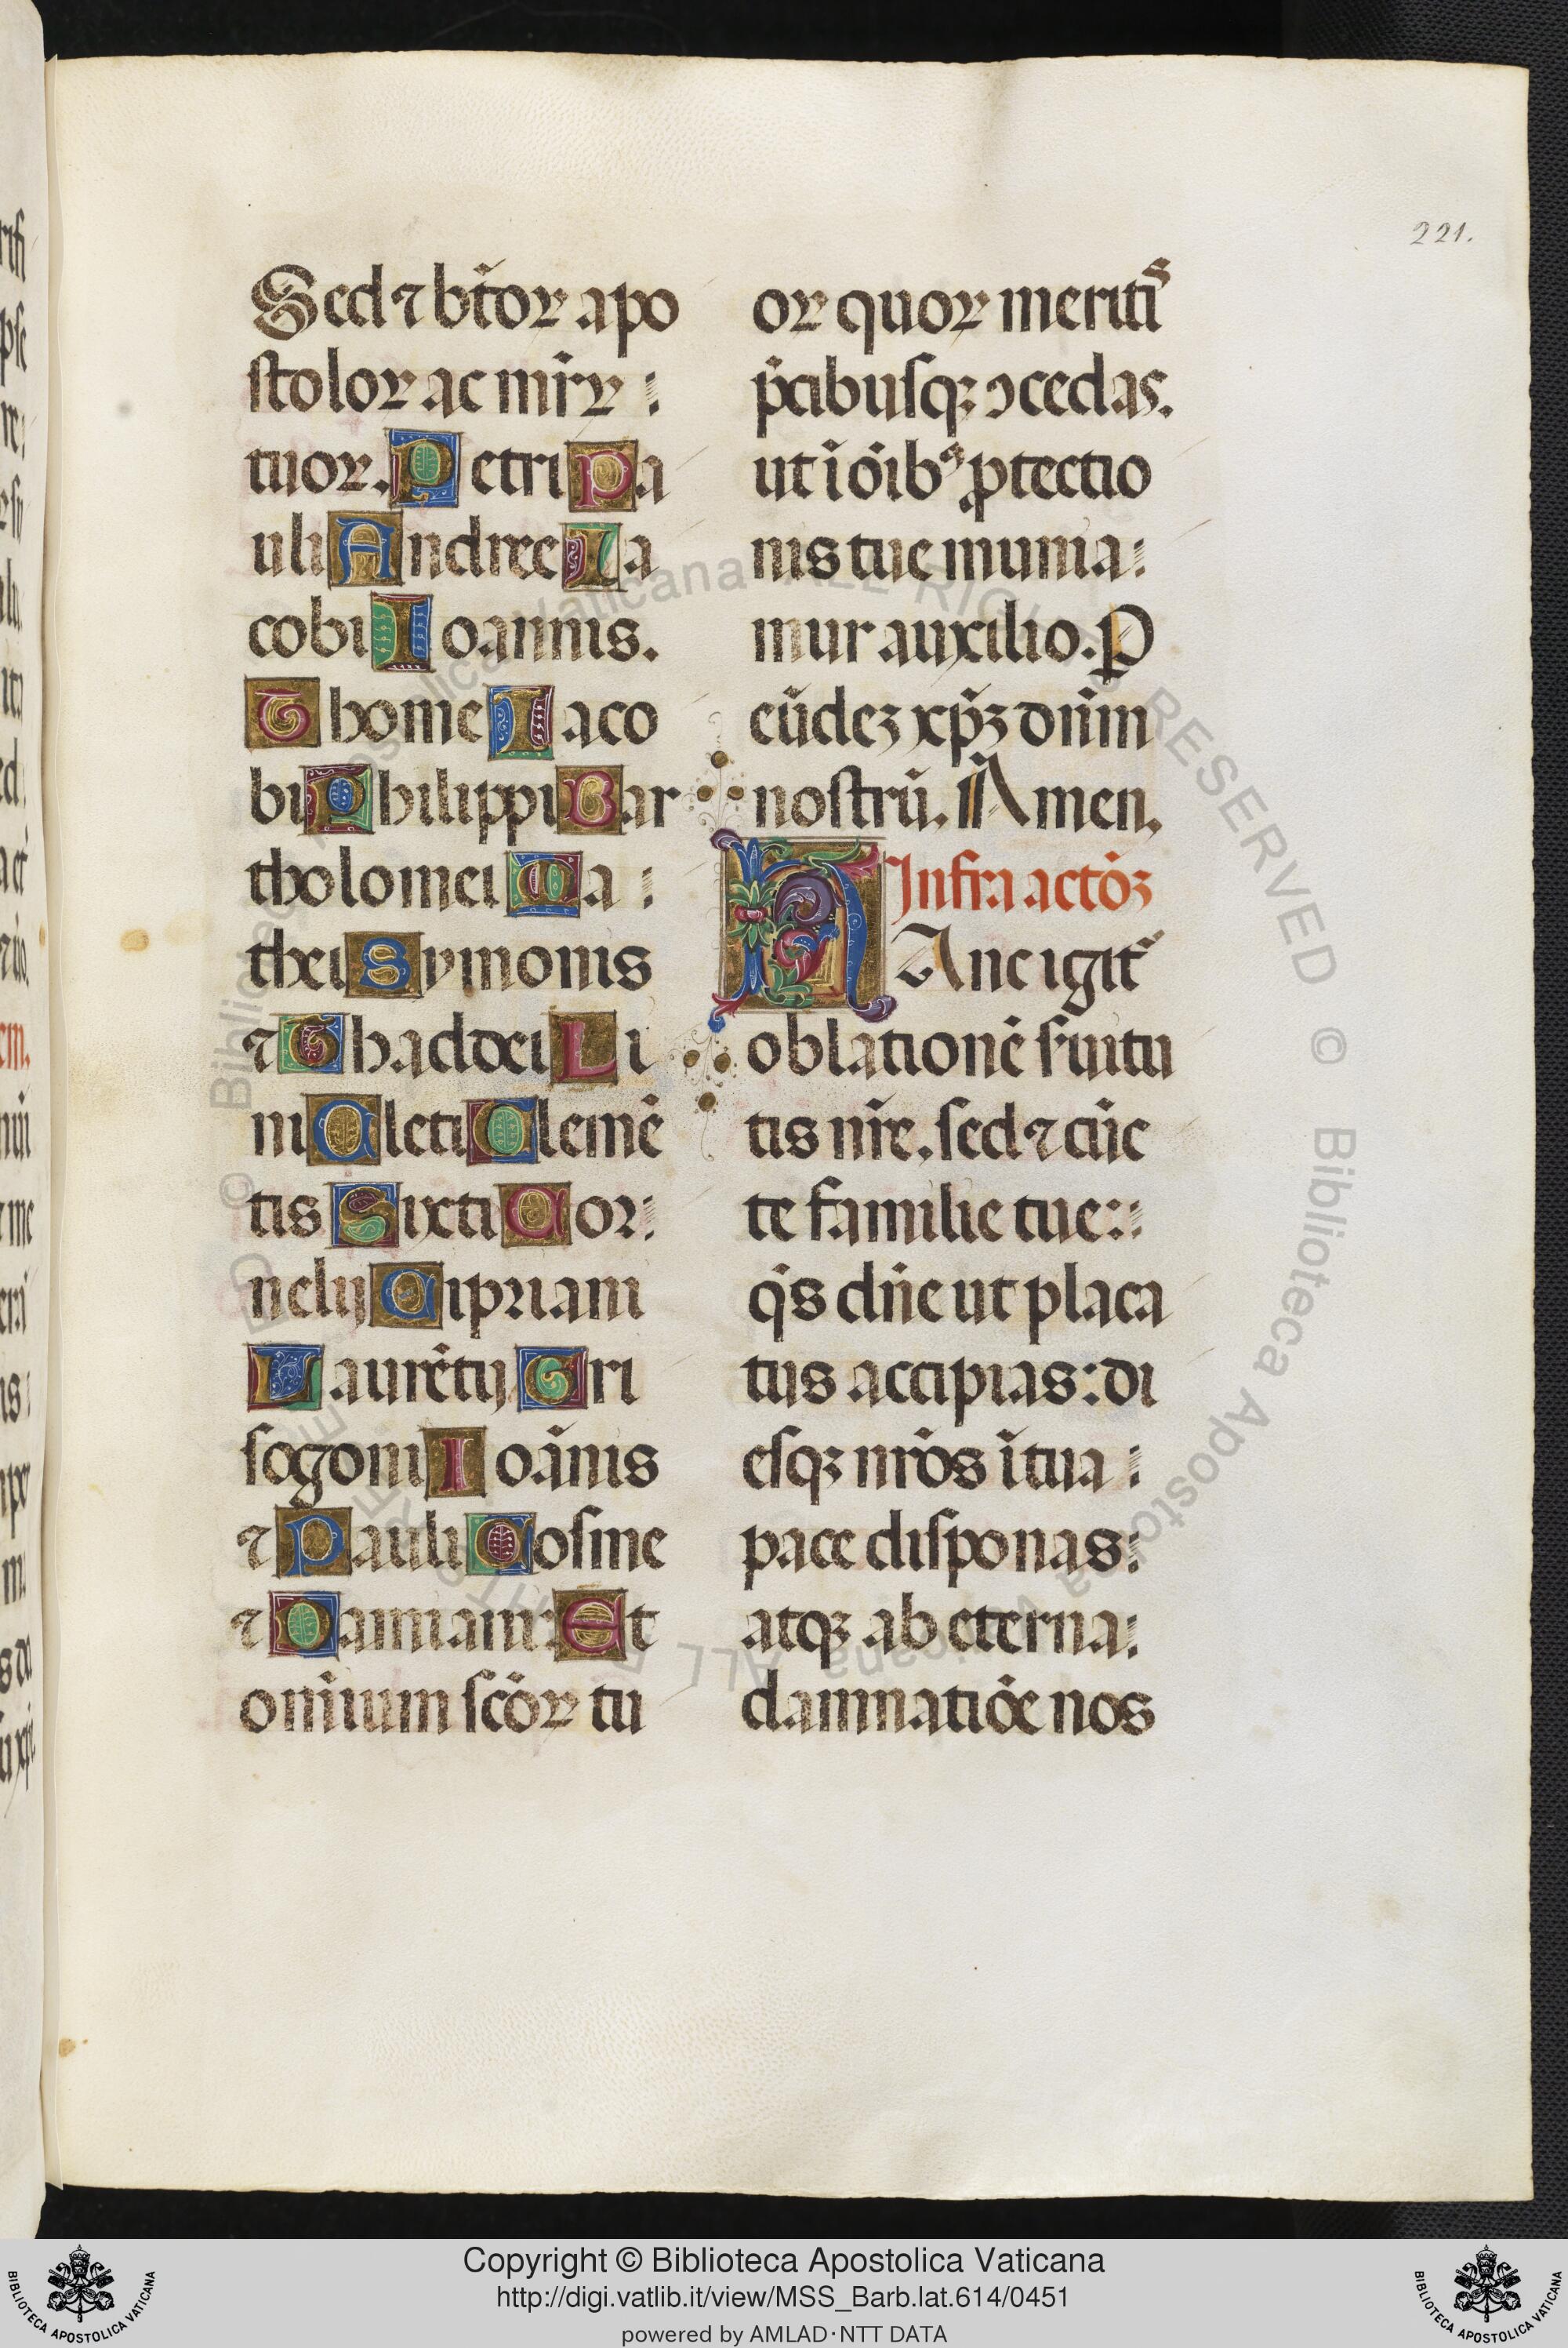 221.
Sed ⁊ bt̄oꝝ apo
ſtoloꝝ ac mr̄ꝝ :
tuoꝝ. Petri Pa
uli Andree Ia
cobi Ioannis.
Thome Iaco
bi Philippi Bar
tholomei Ma :
thei Symonis
⁊ Thaddei Li
ni Cleti Clemē
tis Sixti Cor :
nelij Cipriani
Laurētij Gri
ſogoni Ioānis
⁊ Pauli Coſme
⁊ Damiani : Et
oīnium ſc̄oꝝ tu
oꝝ quoꝝ meritis
p̄cibuſqꝫ ↄcedas.
ut ī oīb⁹ ꝓtectio
nis tue munia :
mur auxilio. P
eūdeꝫ xp̄ꝫ dn̄m
noſtrū. Amen.
Infra actōꝫ
HAnc igit᷑
oblationē ſ'uitu
tis nr̄e. ſed ⁊ cūc
te familie tue :
q̄s dn̄e ut placa
tus accipias : di
eſqꝫ nr̄os ī tua :
pace diſponas :
atqꝫ ab eterna :
damnatiōe nos
© Biblioteca Apostolica Vaticana ALL RIGHTS RESERVED © Biblioteca Apostolica Vaticana ALL RIGHTS RESERVED
Copyright © Biblioteca Apostolica Vaticana
http://digi.vatlib.it/view/MSS_Barb.lat.614/0451
powered by AMLAD·NTT DATA
BIBLIOTECA APOSTOLICA VATICANA
BIBLIOTECA APOSTOLICA VATICANA